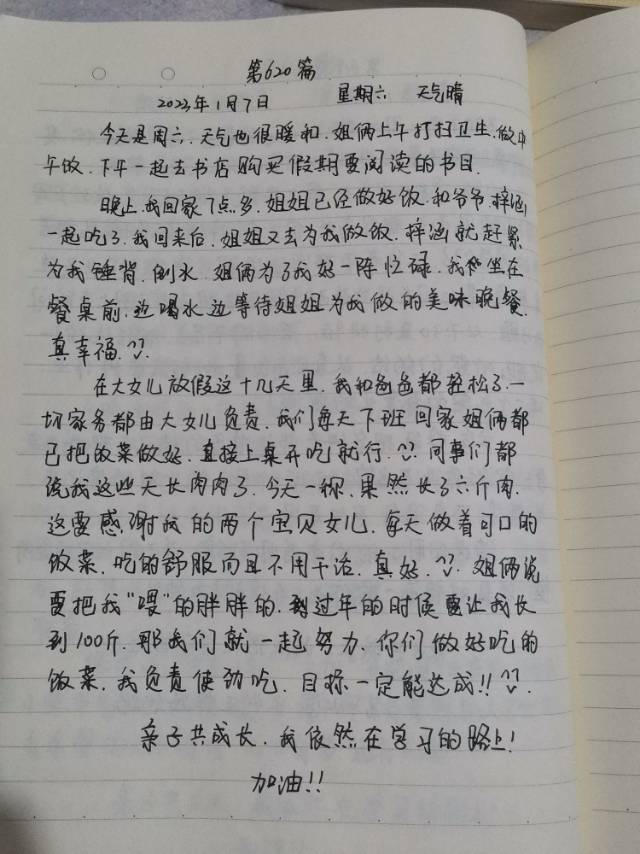 第620篇
2023年1月7日 星期六 天气晴
今天是周六.天气也很暖和.姐俩上午打扫卫生.做中
午饭.下午一起去书店购买假期要阅读的书目.
晚上.我回家7点多.姐姐已经做好饭.和爷爷.梓涵
一起吃了.我回来后.姐姐又去为我做饭.梓涵就赶紧
为我锤背.倒水.姐俩为了我好一阵忙碌.我和坐在
餐桌前.边喝水边等待姐姐为我做的美味晚餐.
真幸福.^^
在大女儿放假这十几天里.我和爸爸都轻松了.一
切家务都由大女儿负责.我们每天下班回家姐俩都
已把饭菜做好.直接上桌开吃就行.^^.同事们都
说我这些天长肉肉了.今天一称.果然长了六斤肉.
这要感谢我的两个宝贝女儿.每天做着可口的
饭菜.吃的舒服而且不用干活.真好.^^.姐俩说
要把我"喂"的胖胖的.到过年的时候要让我长
到100斤.那我们就一起努力.你们做好吃的
饭菜.我负责使劲吃.目标一定能达成!!^^.
亲子共成长.我依然在学习的路上!
加油!!